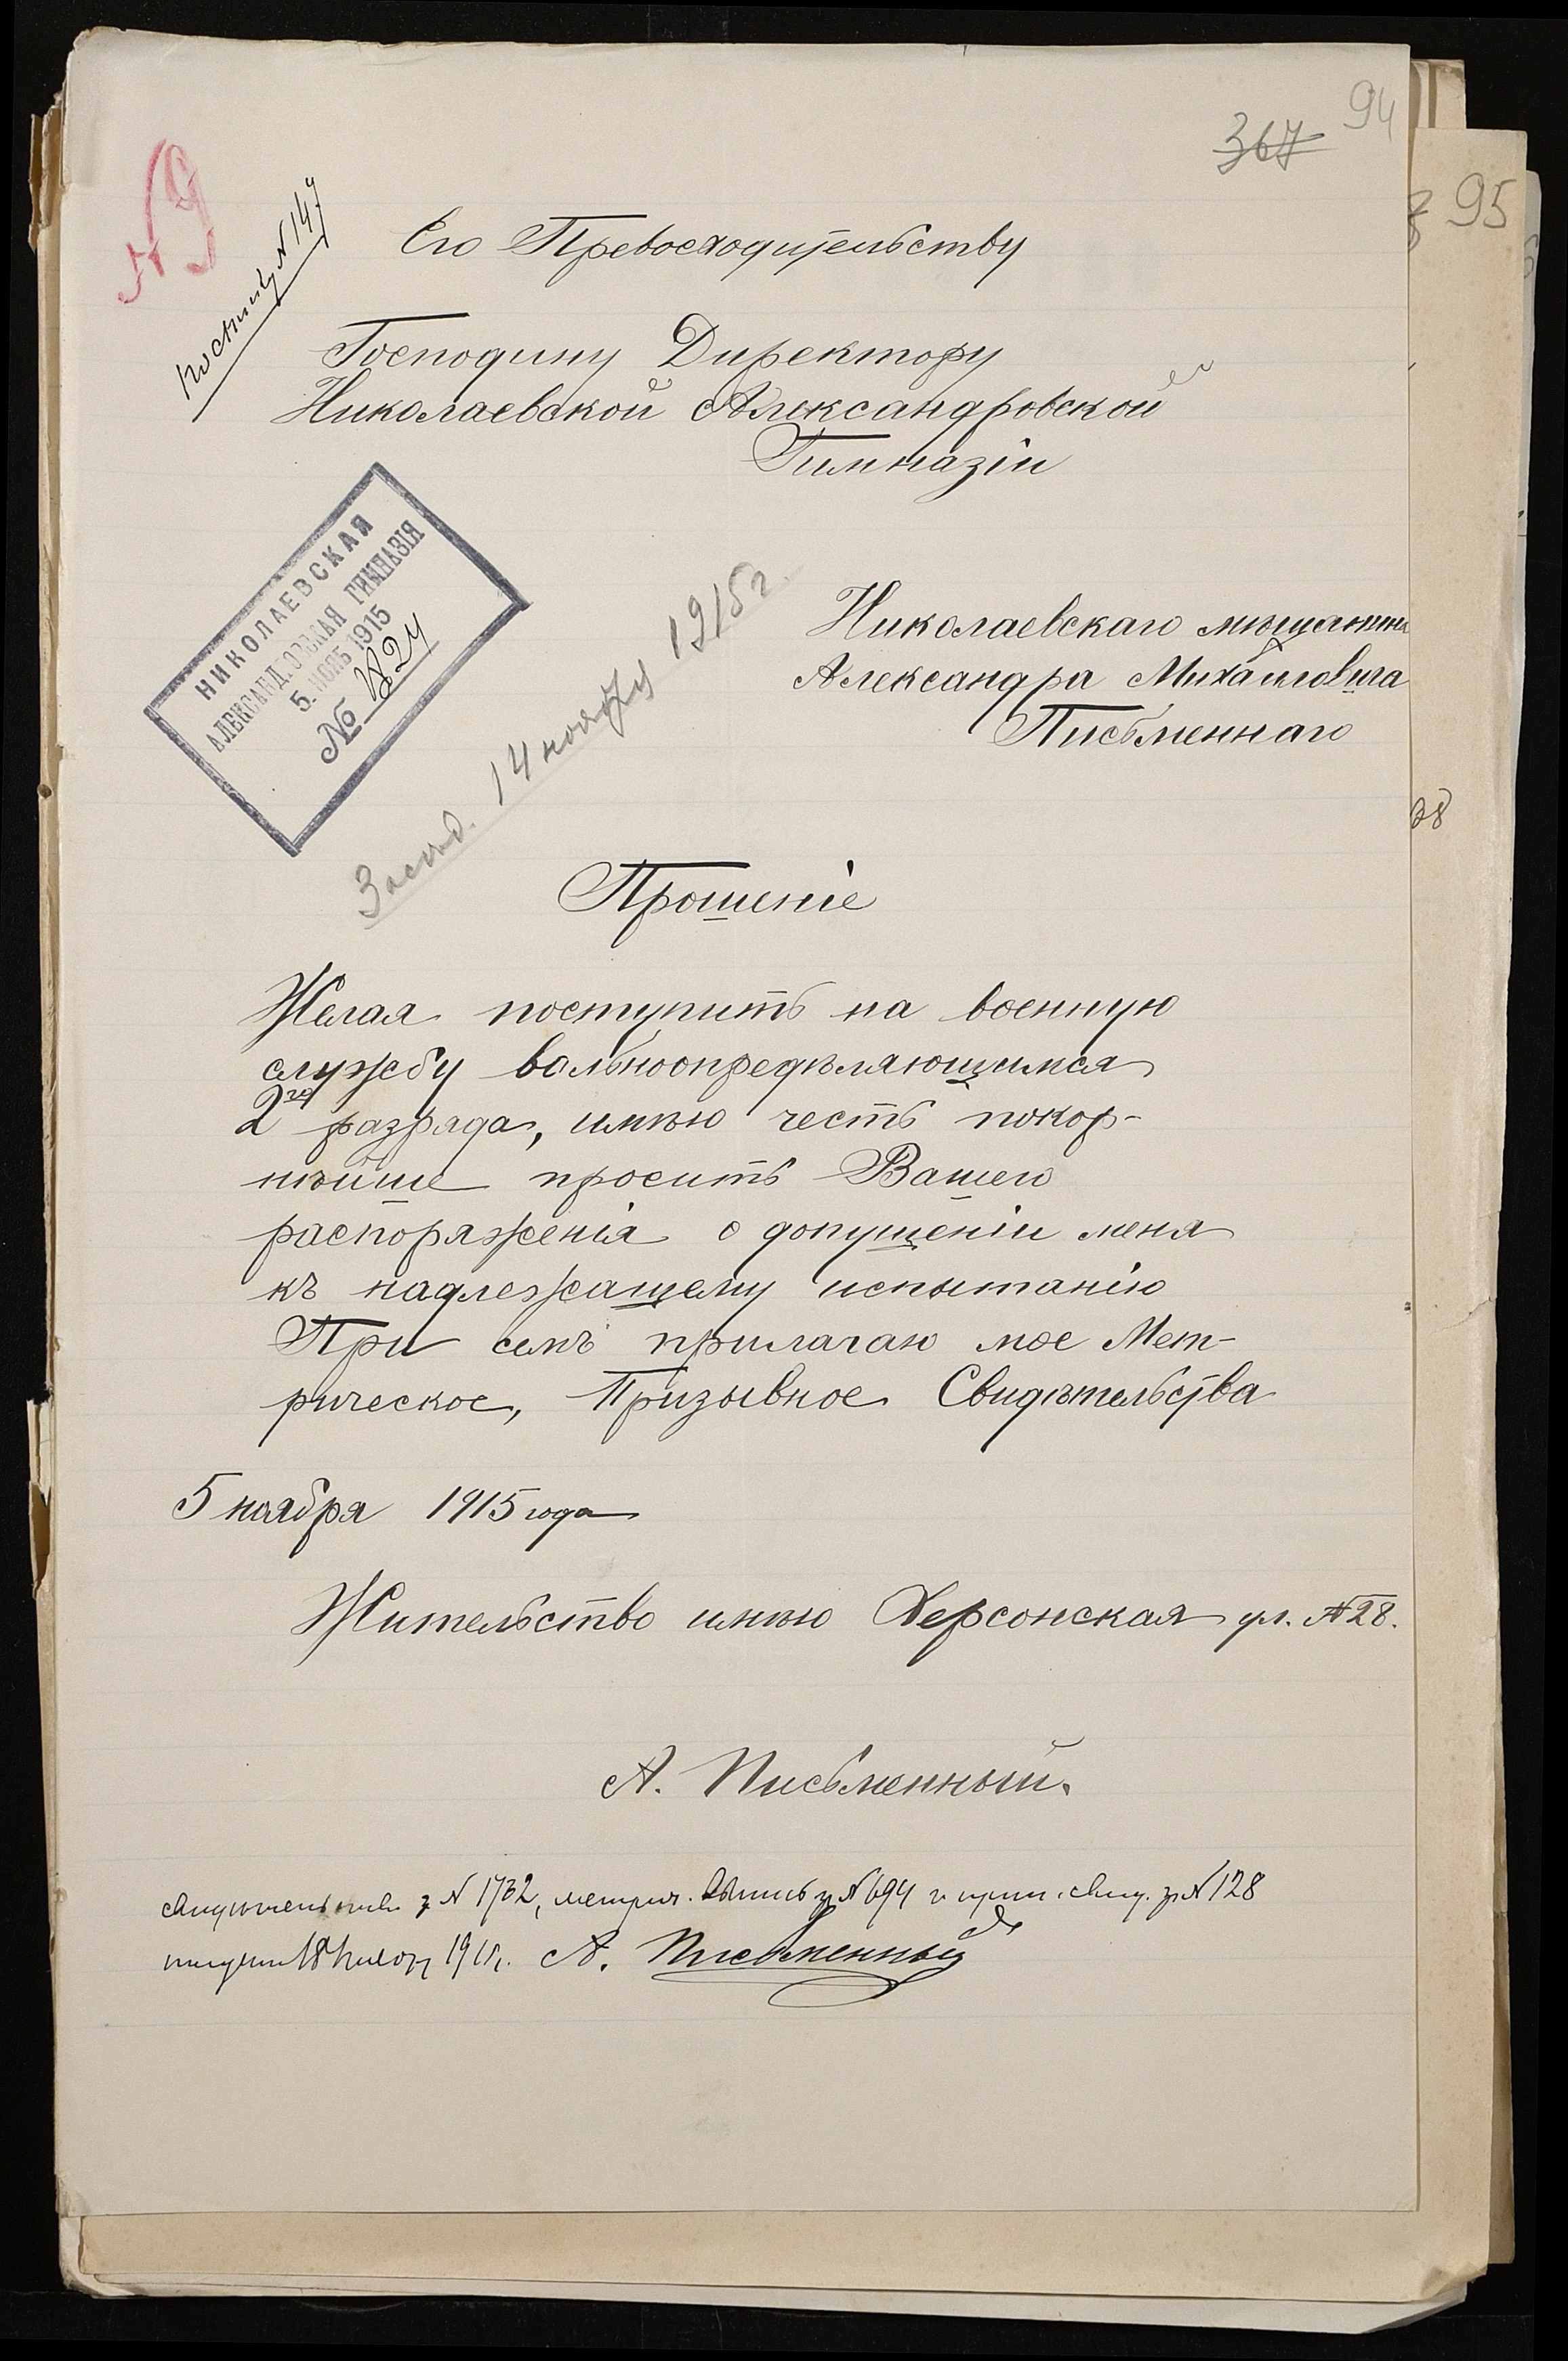 94
367
95
№ 9
Его Превосходительству
Господину Директору
Николаевской Александровской
Гимназіи
НИКОЛАЕВСКАЯ
АЛЕКСАНД.ОВСКАЯ ГИМНАЗІЯ
5. НОЯБ 1915
№ 1824
Засѣд. 14 ноября 1915 г.
Николаевскаго мѣщанина
Александра Михайловича
Письменнаго
38
Прошеніе
Желая поступить на военную
службу вольноопредѣляющимся
2го разряда, имѣю честь покор-
нѣйше просить Вашего
распоряженія о допущеніи меня
къ надлежащему испытанію
При семъ прилагаю мое Мет-
рическое, Призывное Свидѣтельства
5 ноября 1915 года
Жительство имѣю Херсонская ул. № 28.
А. Письменный.
свидѣтельство з № 1732, метрич. выпись з № 694 и прип. свид. з № 128
получилъ 18 1915 г. А. Письменный